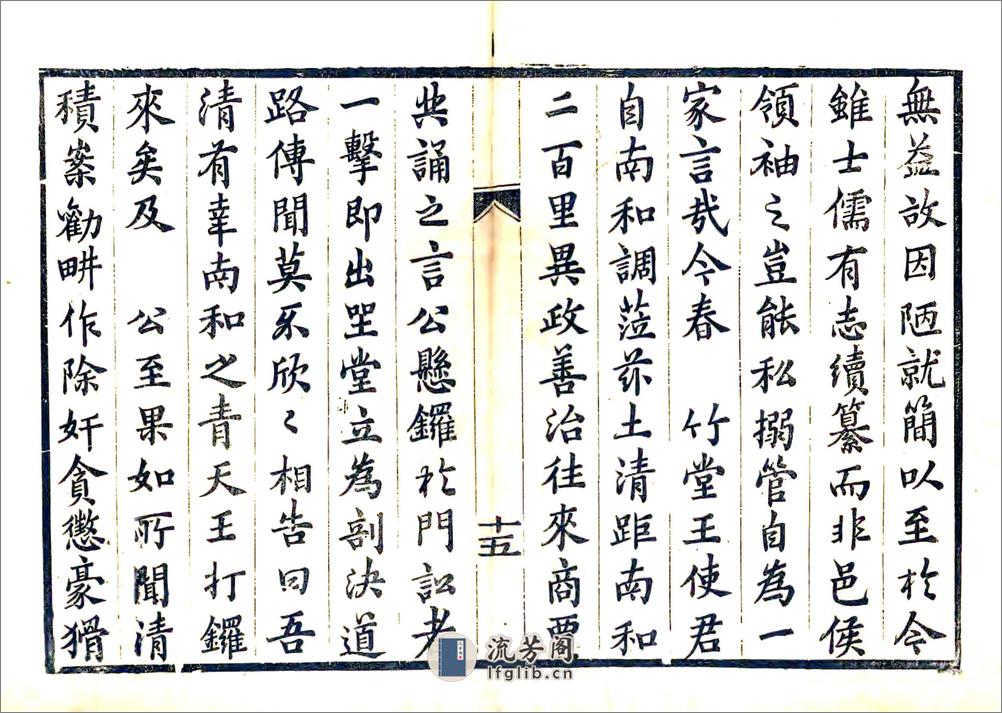 無益故因陋就簡以至於今
雖士儒有志續纂而非邑侯
領袖之豈能私搦管自為一
家言哉今春 竹堂王使君
自南和調蒞茲土清距南和
二百里異政善治往來商賈
十五
共誦之言公懸鑼於門訟者
一擊即出坐堂立為剖決道
路傳聞莫不欣〻相告曰吾
清有幸南和之青天王打鑼
來矣及 公至果如所聞清
積案勸畊作除奸貪懲豪猾
流芳阁
lfglib.cn